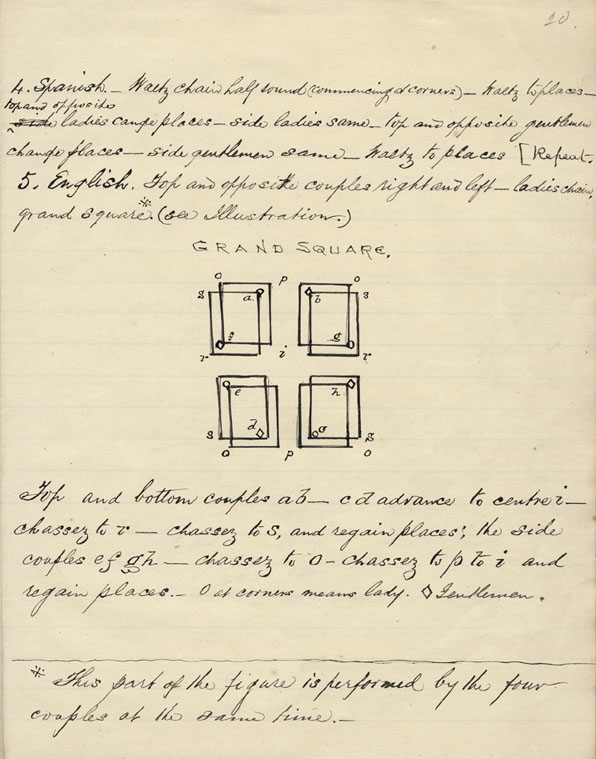 20.
4. Spanish. – Waltz chain half round (commencing at corners) – Waltz to places –
top and opposite
side ladies cange places – side ladies same – top and opposite gentlemen
change places – side gentlemen same – Waltz to places [Repeat.
5. English. Top and opposite couples right and left – ladies chain,
grand square.* (see Illustration.)
GRAND SQUARE.
o p o
s a b s
f g
r i r
e h
s d c s
o p o
Top and bottom couples ab – cd advance to centre i –
chassez to r – chassez to s, and regain places; the side
couples ef gh – chassez to o – chassez to p to i and
regain places. – O at corners means lady. ◊ Gentlemen.
* This part of the figure is performed by the four
couples at the same time. –